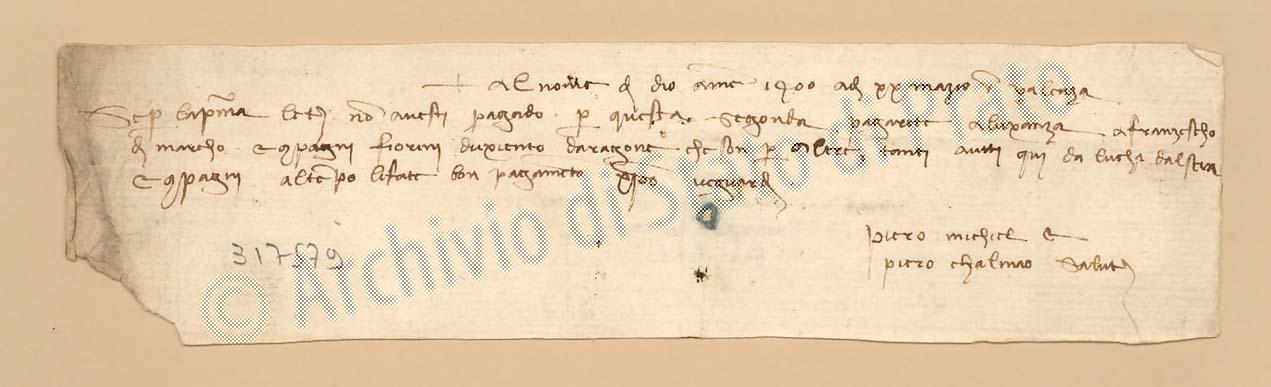 + Al nome d dio ame 1400 adi xx mazio i valenza
Se p la pma letra no avesti pagado p questa segonda pagarete a luxanza a franzescho
d marcho e conpagni fiorini duxiento daragone che son p altre tanti auti qui da lucha dal siera
e conpagni al tenpo li fate bon pagameto xpo ve guardi
piero michiel e
piero chalmao salut
317579
© Archivio di Stato di Prato